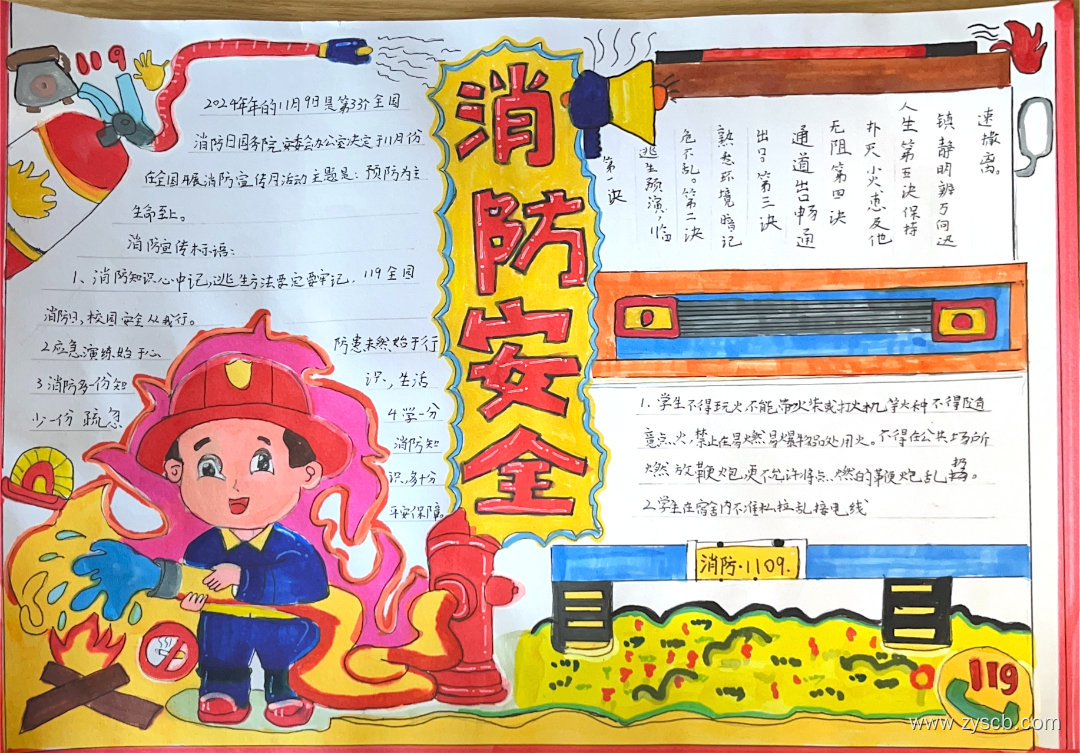 119
2024年年的11月9日是第33个全国
消防日国务院安委会办公室决定于11月份
在全国开展消防宣传月活动主题是：预防为主
生命至上。
消防宣传标语：
1、消防知识心中记，逃生方法要定要牢记．119全国
消防日，校园安全从我行。
2应急演练始于心
防患未然始于行
3消防多一份知
识．，生活
少一份 疏忽
4学一分
消防知
识，多十分
平安保障。
消防安全
第一诀
逃生预演，临
危不乱。第二诀
熟悉环境暗记
出口。第三诀
通道出畅通
无阻第四诀
扑灭小火惠及他
人生第五诀保持
镇静明辨方向迅
速撤离。
1．学生不得玩火不能，带火柴或打火机等火种不得随
意点火，禁止在易燃易爆物品处用火。不得在公共场所
燃放鞭炮，更不允许将点燃的鞭炮乱扔。
2．学生在宿舍内不准私拉乱接电线
消防·1109.
119
www.zyscb.com